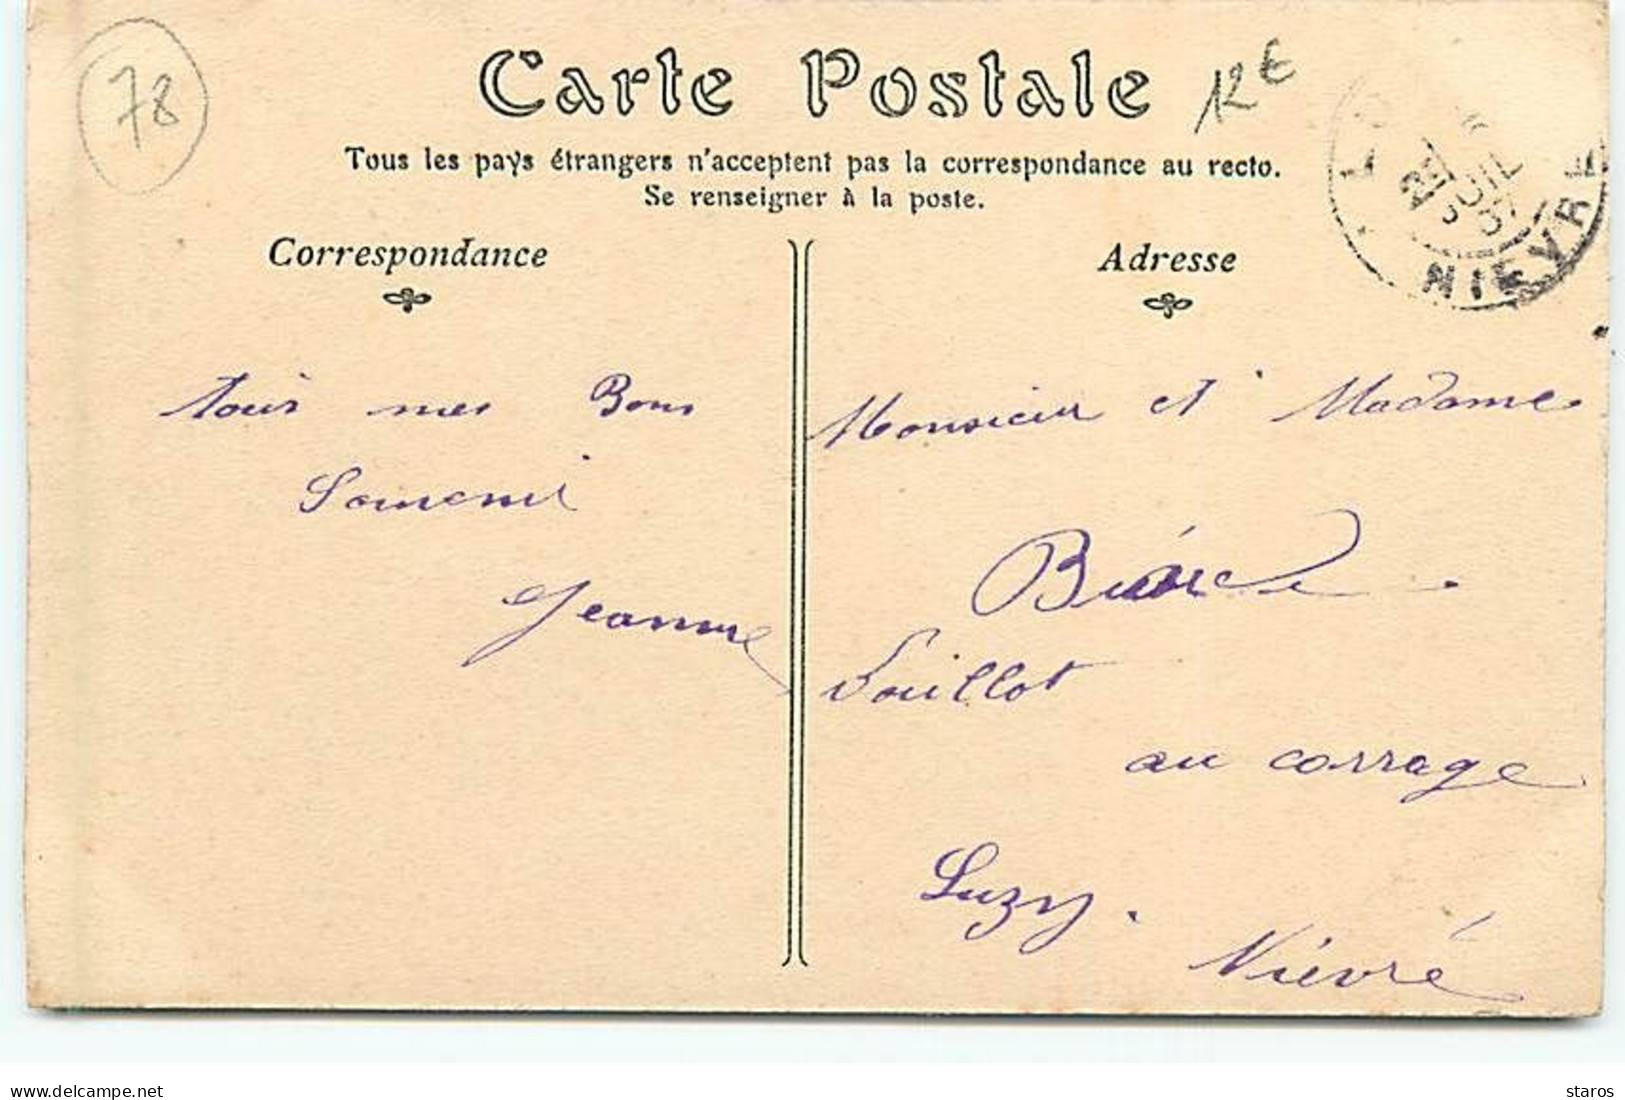 78
Carte Postale
12€
Tous les pays étrangers n'acceptent pas la correspondance au recto.
Se renseigner à la poste.
NIEVRE
Correspondance
Adresse
tous mes Bons
Souvenir
Jeanne
Monsieur et Madame
Souillot
au corrage
Luzy.
Nièvré
www.delcampe.net
staros